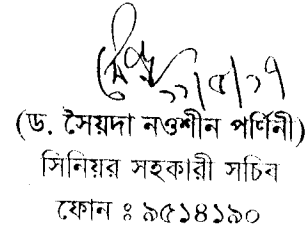 ১১/৫/১৭
(ড. সৈয়দা নওশীন পর্ণিনী)
সিনিয়র সহকারী সচিব
ফোন ঃ ৯৫১৪১৯০